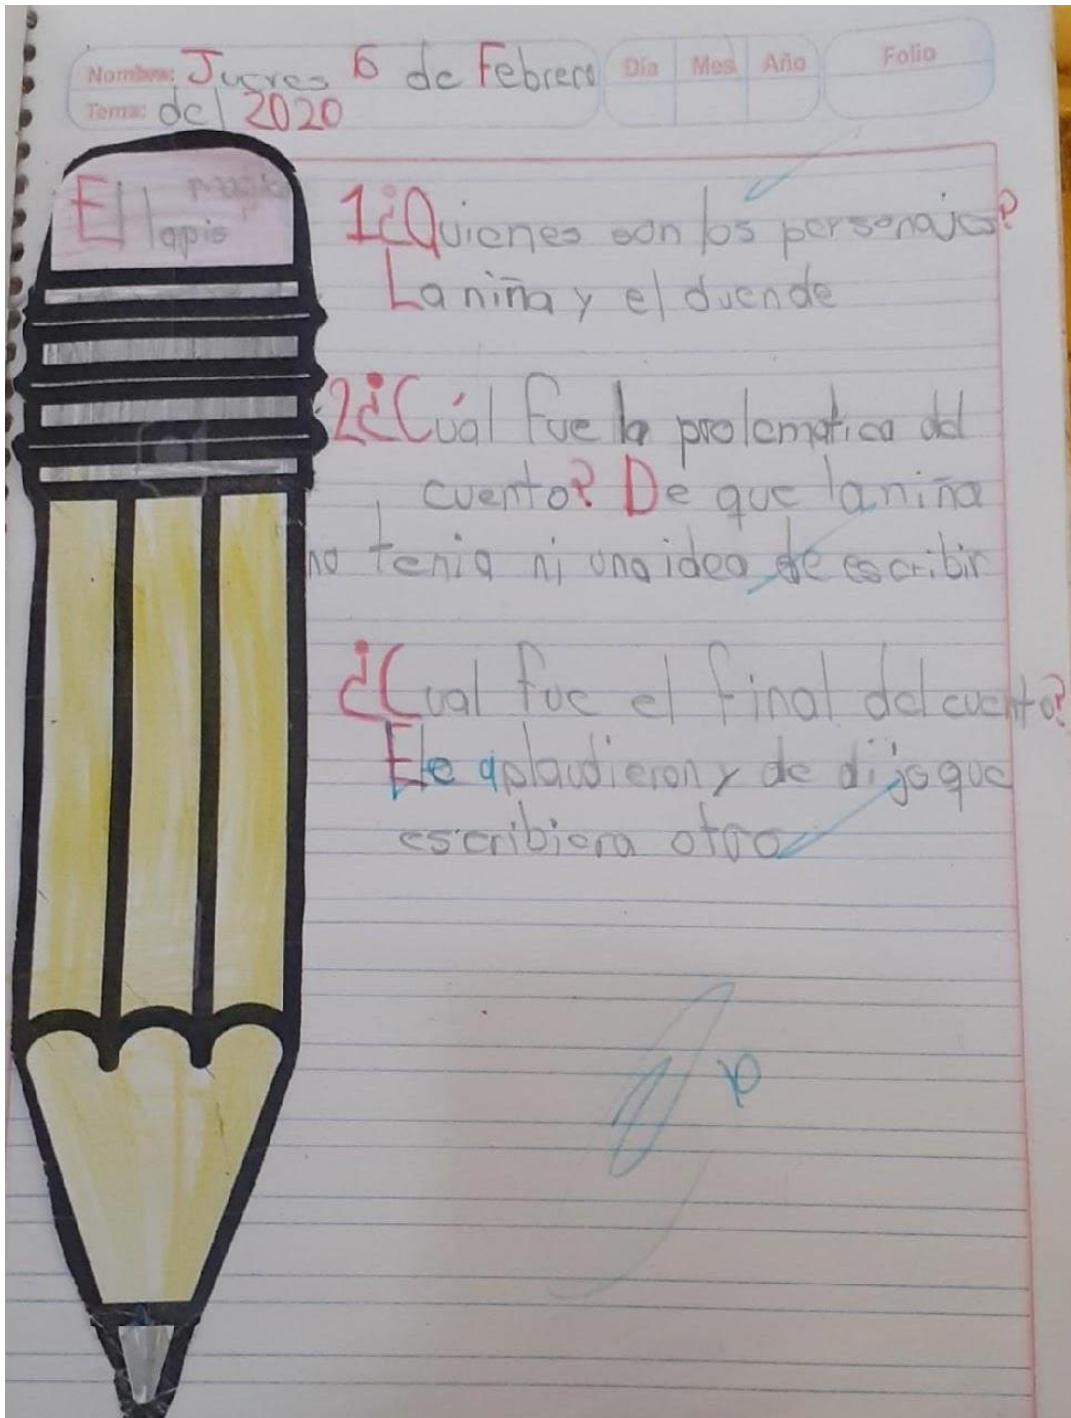 Nombre: Jueves 6 de Febrero
Día Mes Año Folio
Tema: del 2020
El magico
lapis
1¿Quienes son los personajes?
La niña y el duende
2¿Cuál fue la prolematica del
cuento? De que la niña
no tenia ni una idea de escribir
¿Cual fue el final del cuento?
le aplaudieron y de dijo que
escribiera otro